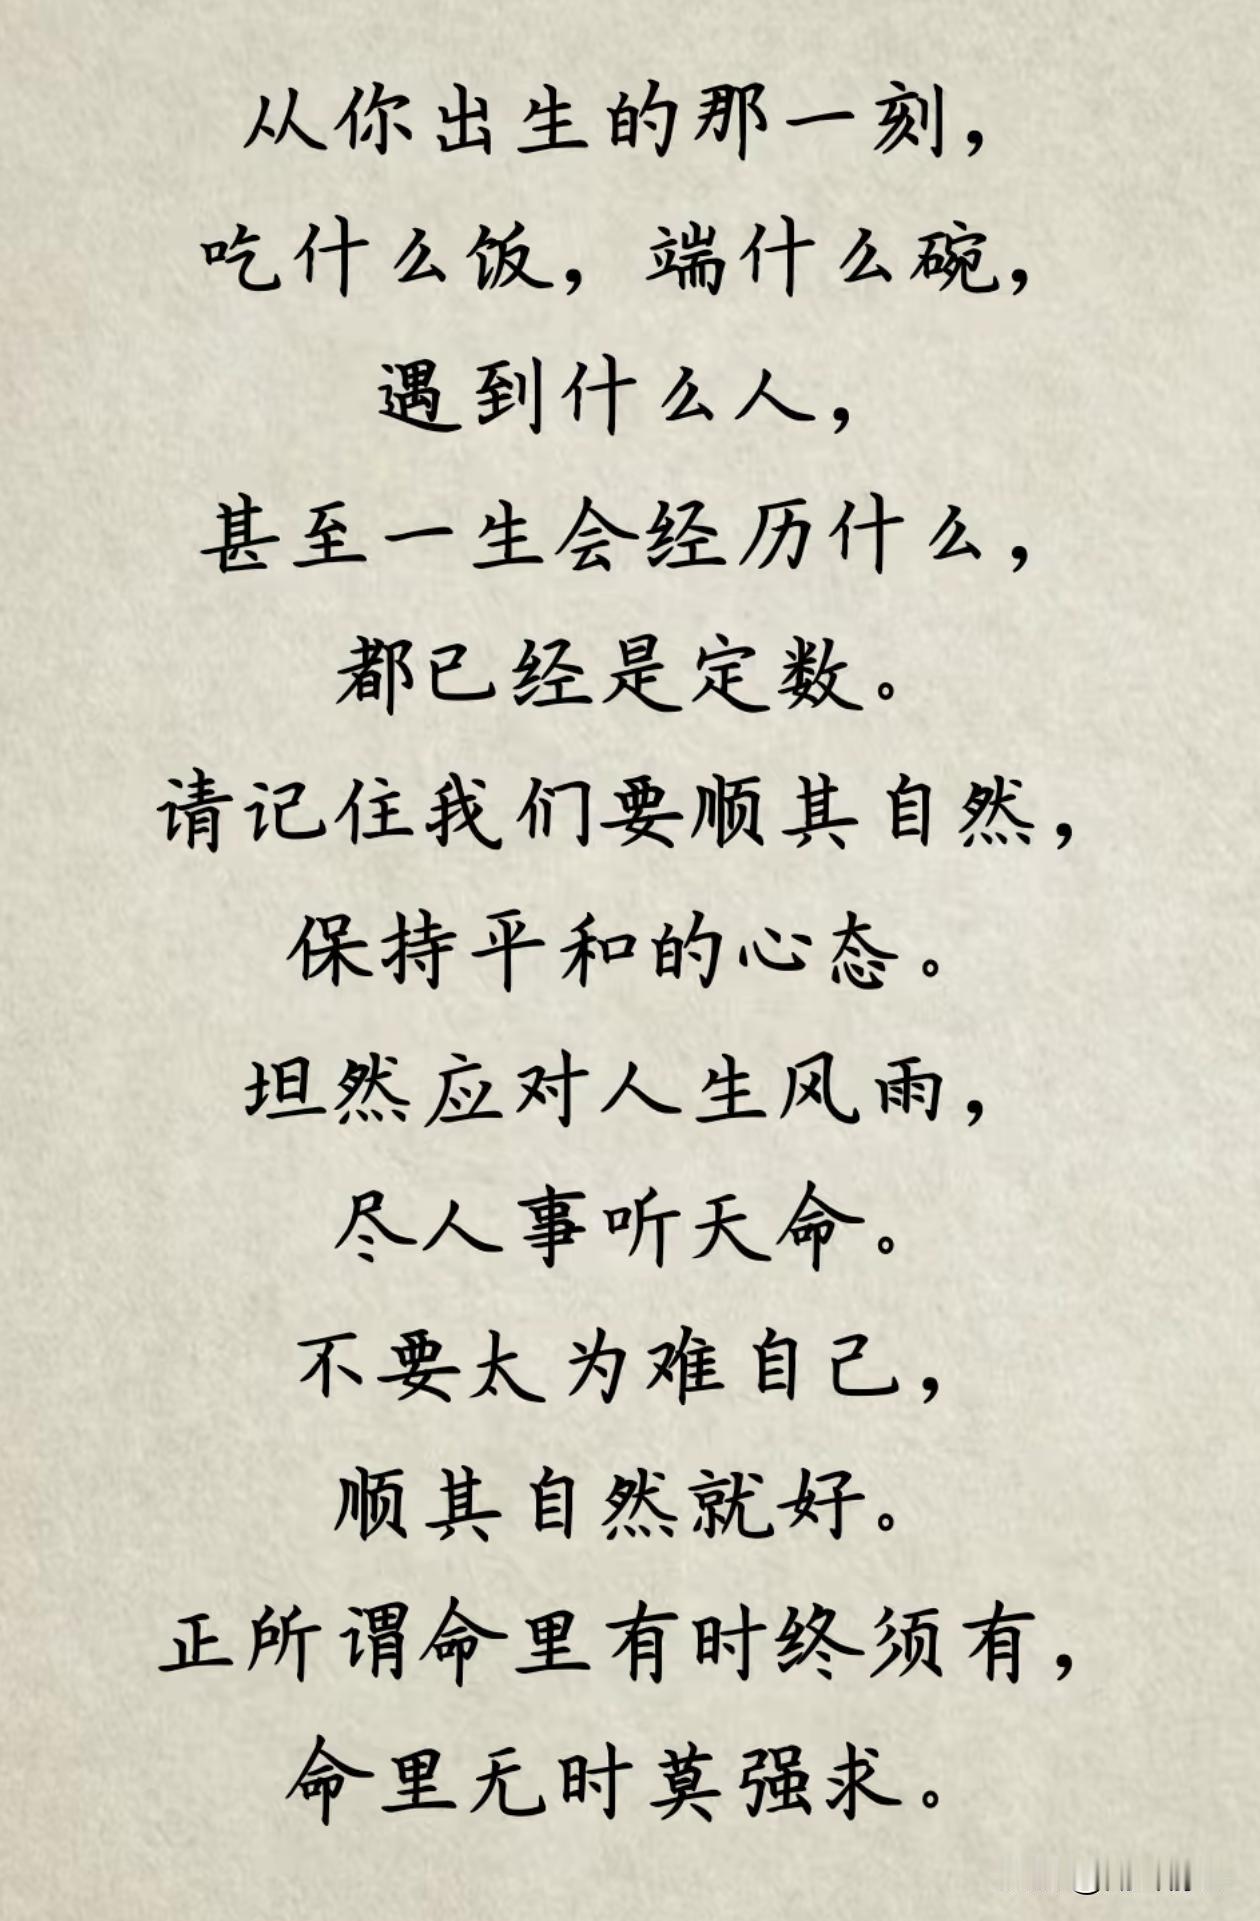 从你出生的那一刻，
吃什么饭，端什么碗，
遇到什么人，
甚至一生会经历什么，
都已经是定数。
请记住我们要顺其自然，
保持平和的心态。
坦然应对人生风雨，
尽人事听天命。
不要太为难自己，
顺其自然就好。
正所谓命里有时终须有，
命里无时莫强求。